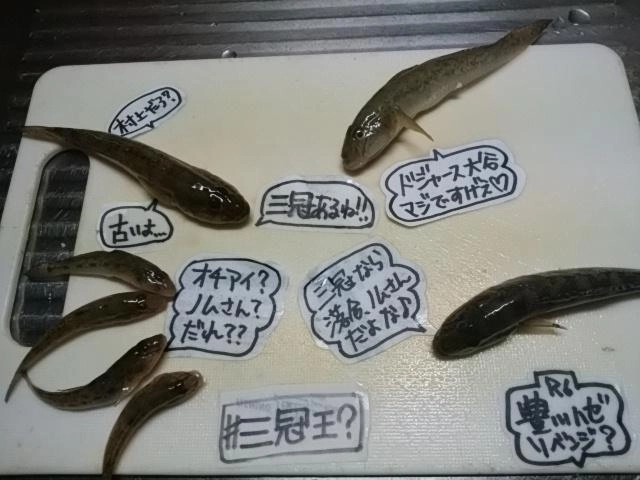 村上だろ?
ドジャース大谷
マジですげえ♡
三冠あるね!!
古いよ...
オチアイ?
ノムさん?
だれ??
三冠なら
落合、ノムさん
だよな♪
#三冠王?
R6
豊ハゼ
リベンジ?